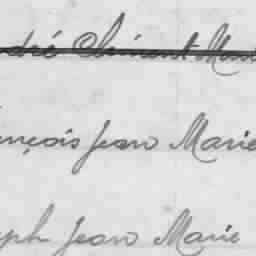 ndré Clément Mari
ançois Jean Marie
eph Jean Marie